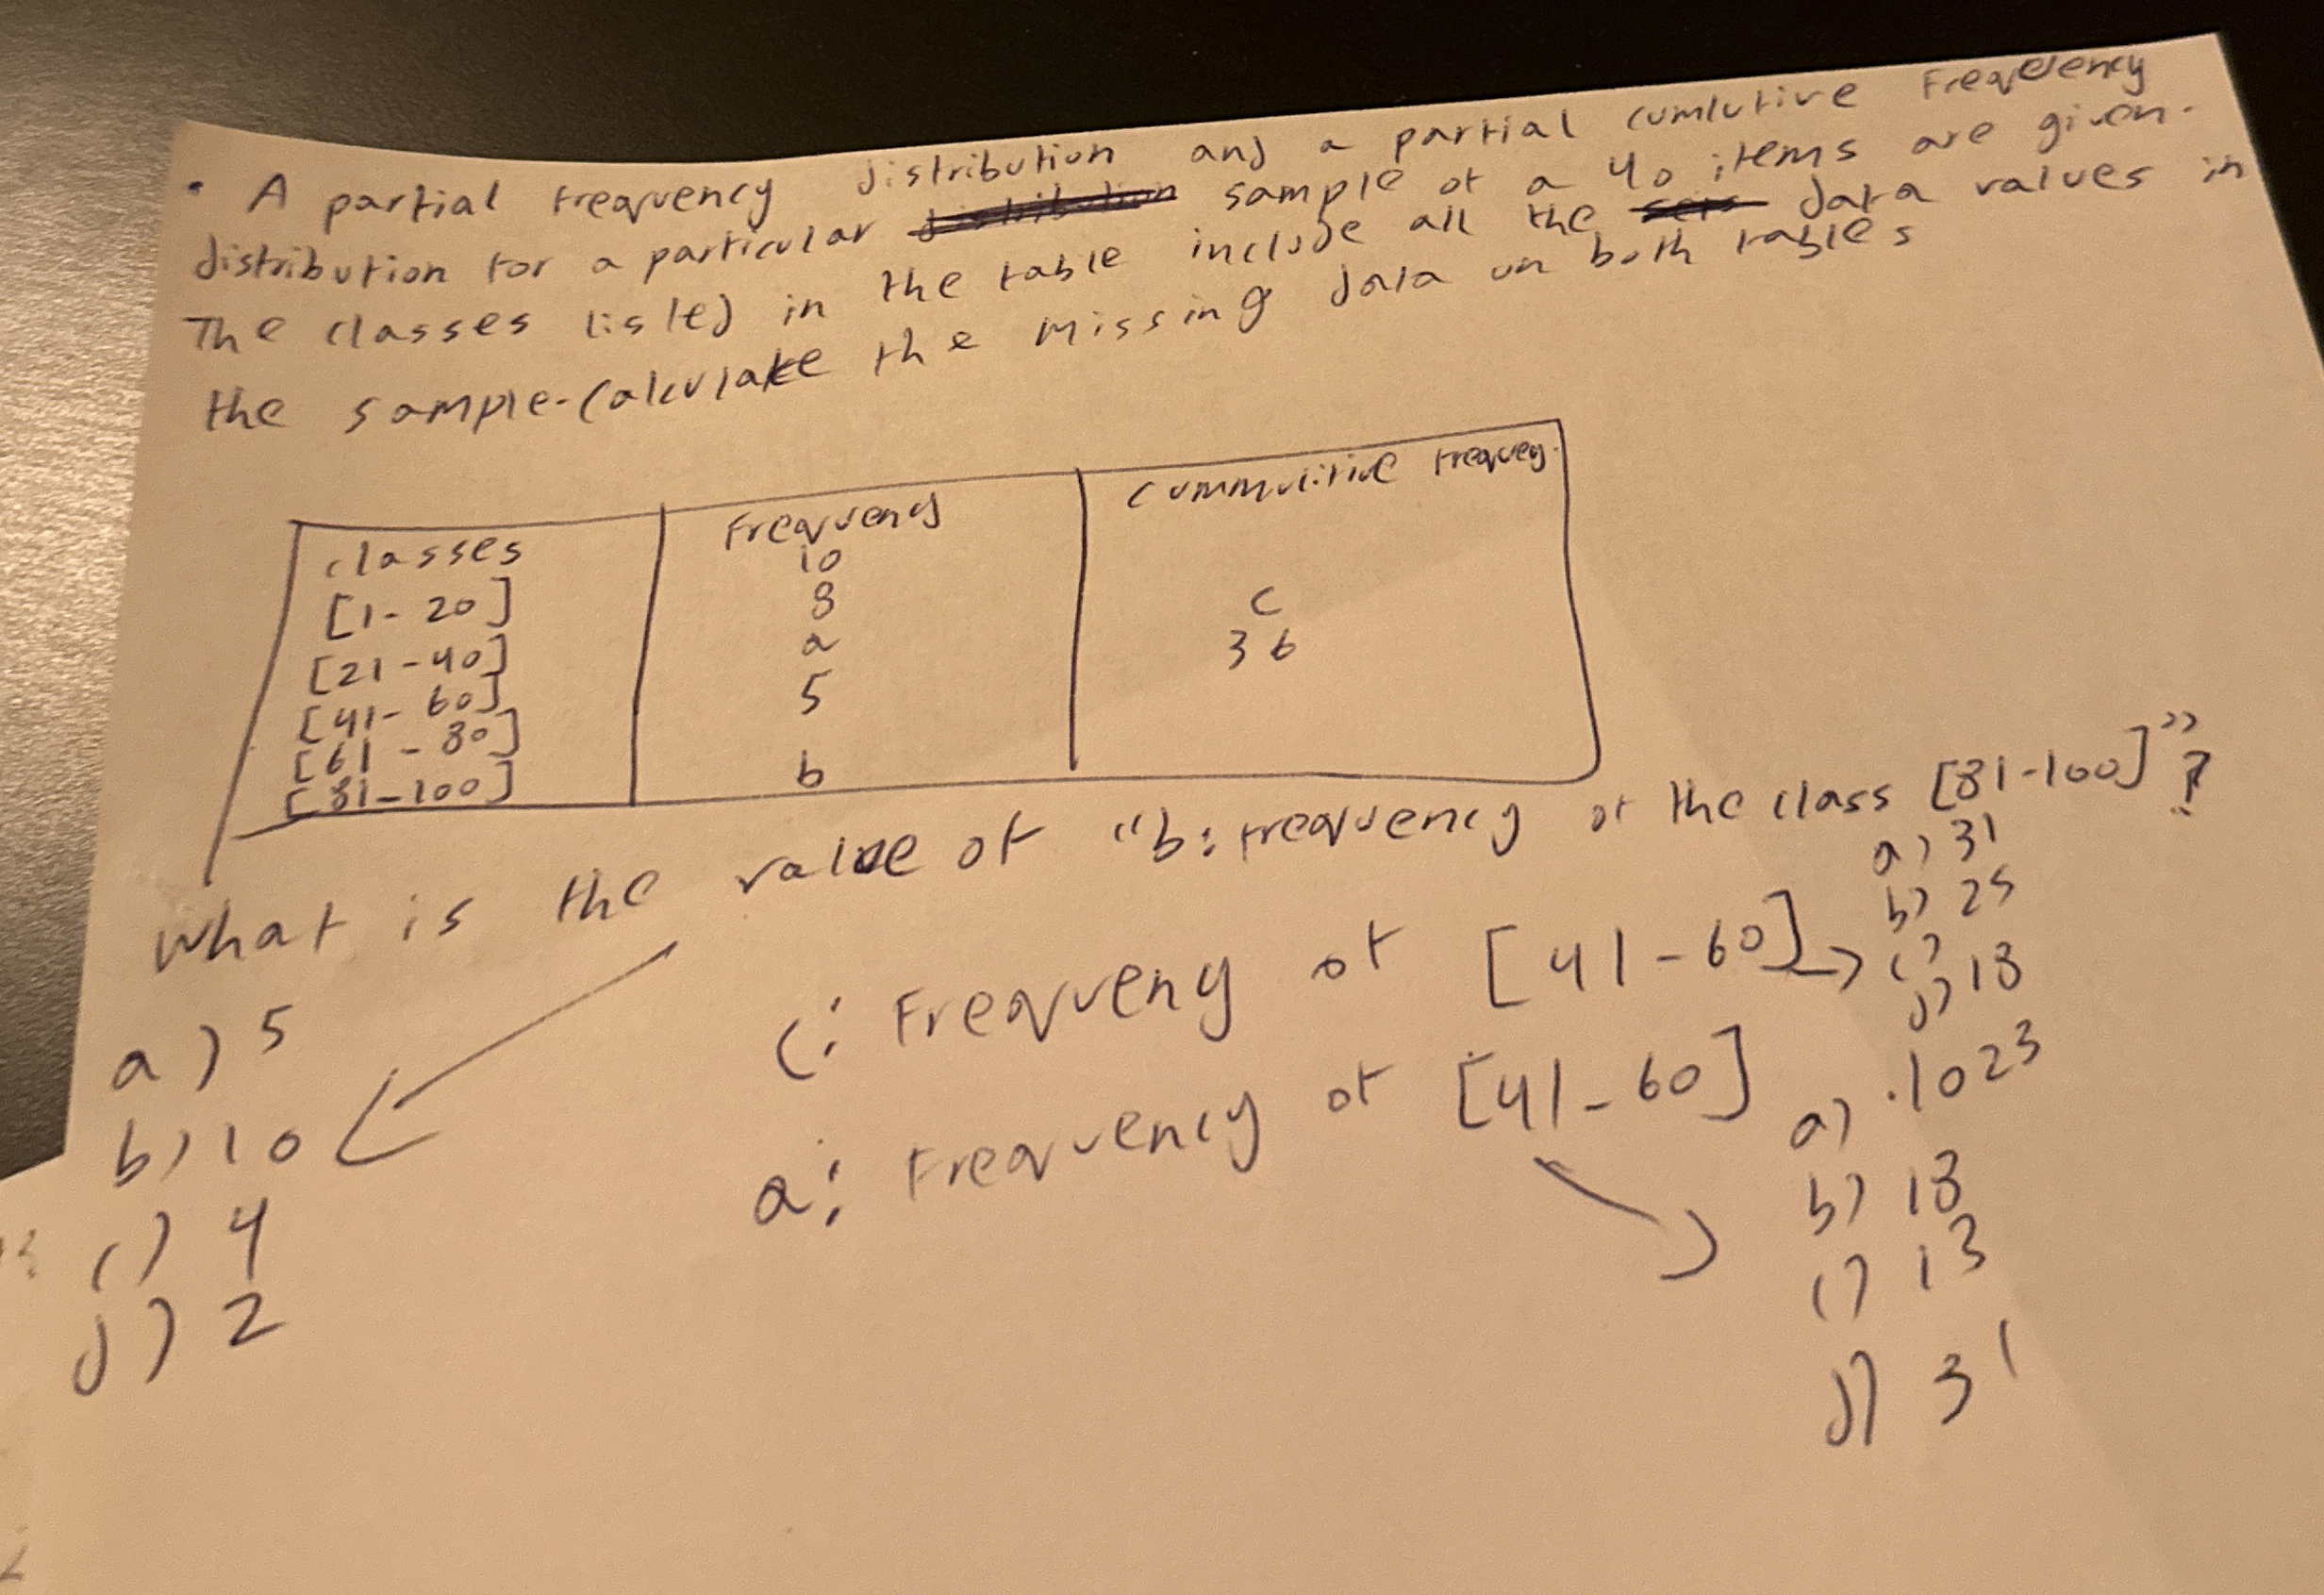 • A partial frequency distribution and a partial cumlutive Freqeency
distribution for a particular sample of a 40 items are given.
The classes listed in the table include all the data values in
the sample. Calculate the missing data on both tables
classes Frequency Cummulitive Frequey.
10
[1-20] 8 C
[21-40] a 36
[41-60] 5
[61-80]
[81-100] b
What is the value of "b: frequency of the class [81-100]"?
a) 5
b) 10
c) 4
d) 2
C: Frequeny of [41-60]
a) 31
b) 25
c)
d) 18
a: Frequency of [41-60]
a) .1023
b) 18
c) 13
d) 31